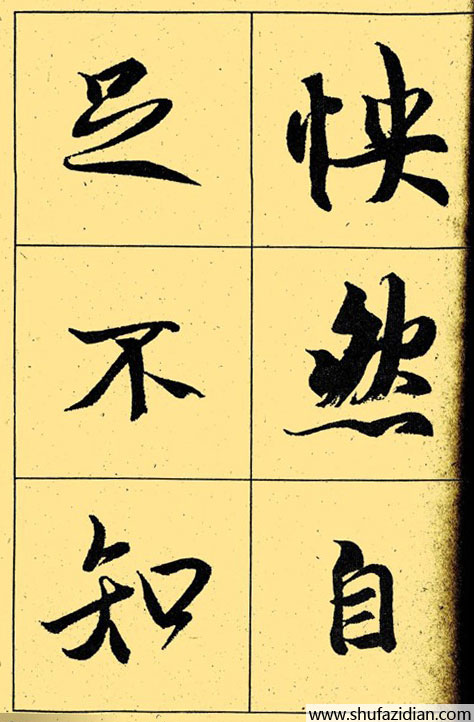 怏然自
足不知
www.shufazidian.com